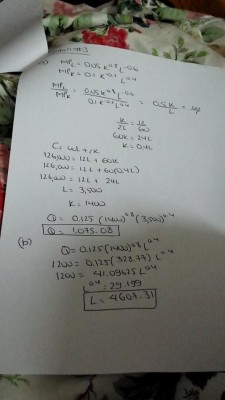 a) MPL = 0.05 K^0.8 L^-0.6
MPK = 0.1 K^-0.2 L^0.4
MPL/MPK = 0.05 K^0.8 L^-0.6 / 0.1 K^-0.2 L^0.4 = 0.5K/L =
K/2L = 12/60
60K = 24L
K = 0.4L
C = wL + rK
126,000 = 12L + 60K
126,000 = 12L + 60(0.4L)
126,000 = 12L + 24L
L = 3,500
K = 1400
Q = 0.125 (1400)^0.8 (3,500)^0.4
Q = 1,075.08
(b) Q = 0.125 (1400)^0.8 L^0.4
1200 = 0.125 (328.77) L^0.4
1200 = 41.09625 L^0.4
L^0.4 = 29.199
L = 4607.31